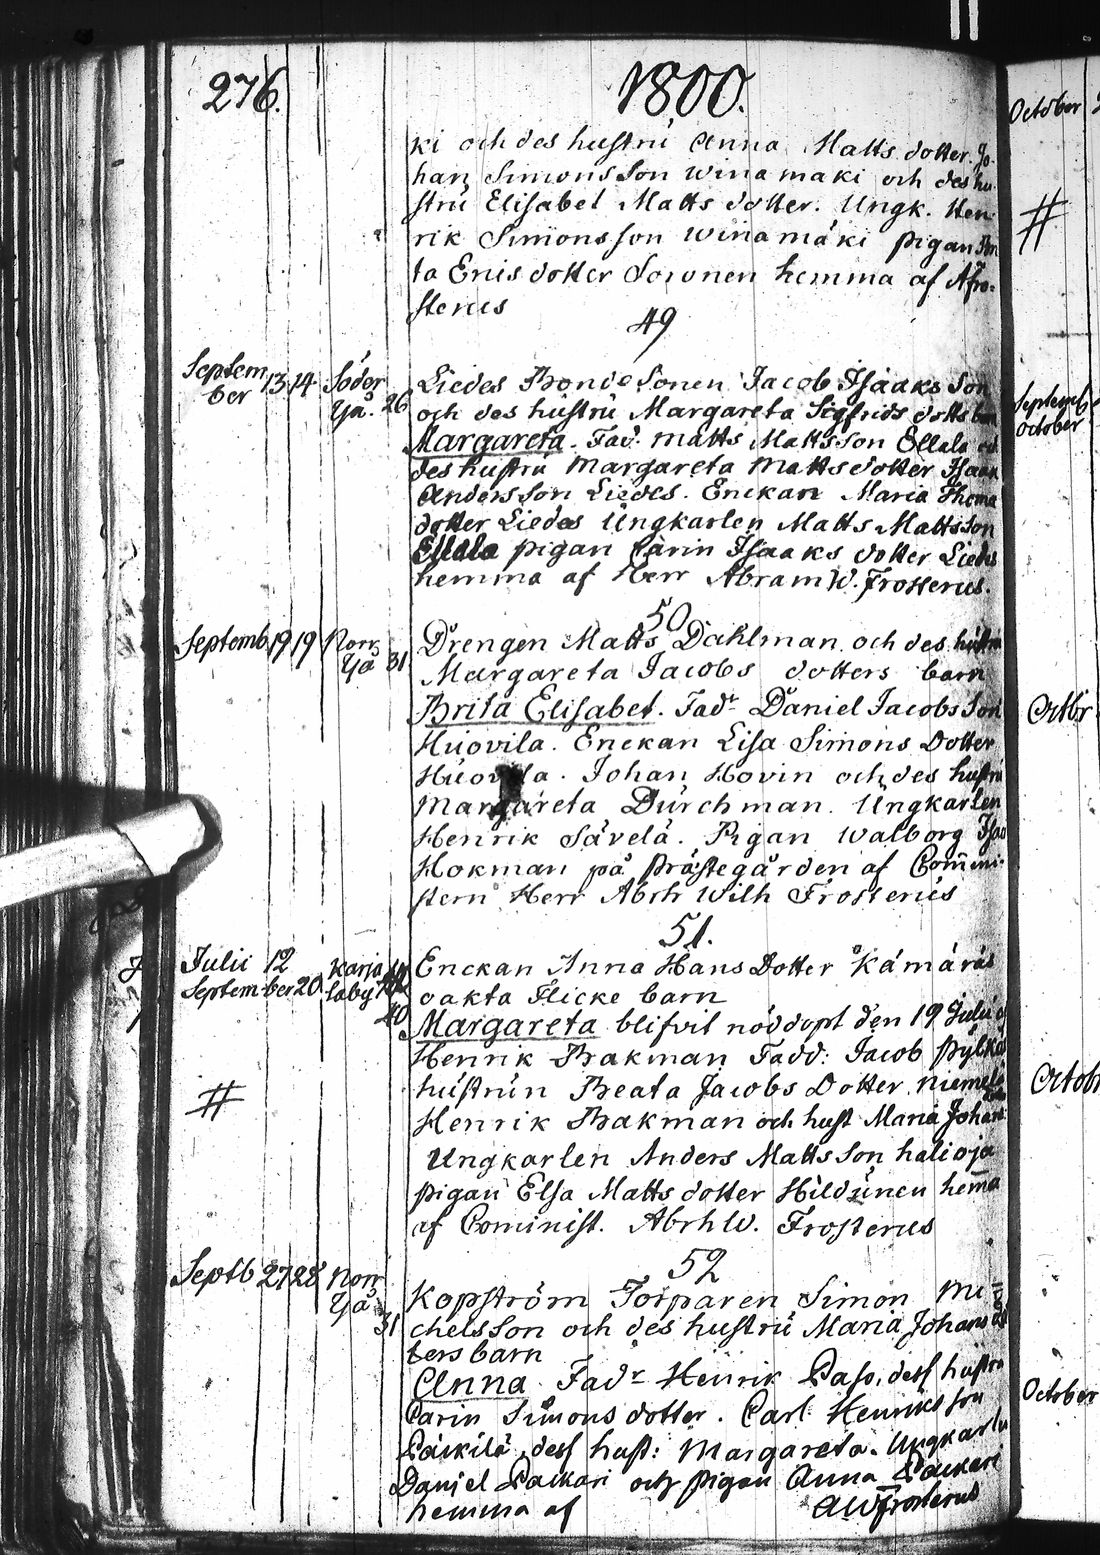 276. 1800.
ki och des hustru Anna Matts dotter. Jo-
han Simons Son winamäki och des hu-
stru Elisabet Matts dotter. Ungk. Hen
rik Simonsson winamäki pigan
ta Enis dotter hemma af Afro-
sterus
49
Septem 13 14 Söder Liedes Bonde Sonen Jacob Isaaks Son
ber Yå. 26 och des hustru Margareta Sigfrids dotts
Margareta. Fad. Matts Mattsson Ellala
des hustru Margareta Matts dotter Isaak
Anders Son Liedes. Enckan Maria Thoma
dotter Liedes Ungkarlen Matts Mattsson
Ellala pigan Carin Isaaks dotter Liedes
hemma af Herr Abram W. Frosterus.
50
Septemb 19 19 Norr Drengen Matts Dahlman och des hustru
Yå 31 Margareta Jacobs dotters barn
Brita Elisabet. Fadr Daniel Jacobs Son
Huovila. Enckan Lisa Simons Dotter
Huovila. Johan Hovin och des hustru
Margareta Durchman. Ungkarlen
Henrik Sävelä. Pigan Walborg
Hokman på Prästegården af Commi-
stern Herr Abrh Wilh Frosterus
51.
Julii 12 Karja Enckan Anna Hans Dotter Kämäräs
September 20 laby oäkta Flicke barn
40 Margareta blifvit nöddopt den 19 Julii
Henrik Brakman Fadd: Jacob
hustrun Beata Jacobs Dotter
# Henrik Brakman och hust Maria Johans
Ungkarlen Anders Matts Son halioja
pigan Elsa Matts dotter Hildunen hema
af Cominist. Abrh W. Frosterus
52
Septb 27 28 Norr Kopström Torparen Simon Mi
Yå 31 chels Son och des hustru Maria Johans
ters barn
Anna. Fadr Henrik Paso, dess hustru
Carin Simons dotter. Carl Henriksson
Päikilä, dess hust: Margareta. Ungkarln
Daniel Packari och pigan Anna Packari
hemma af AWFrosterus
October
#
Septemb
October
Octbr
Octobr
October